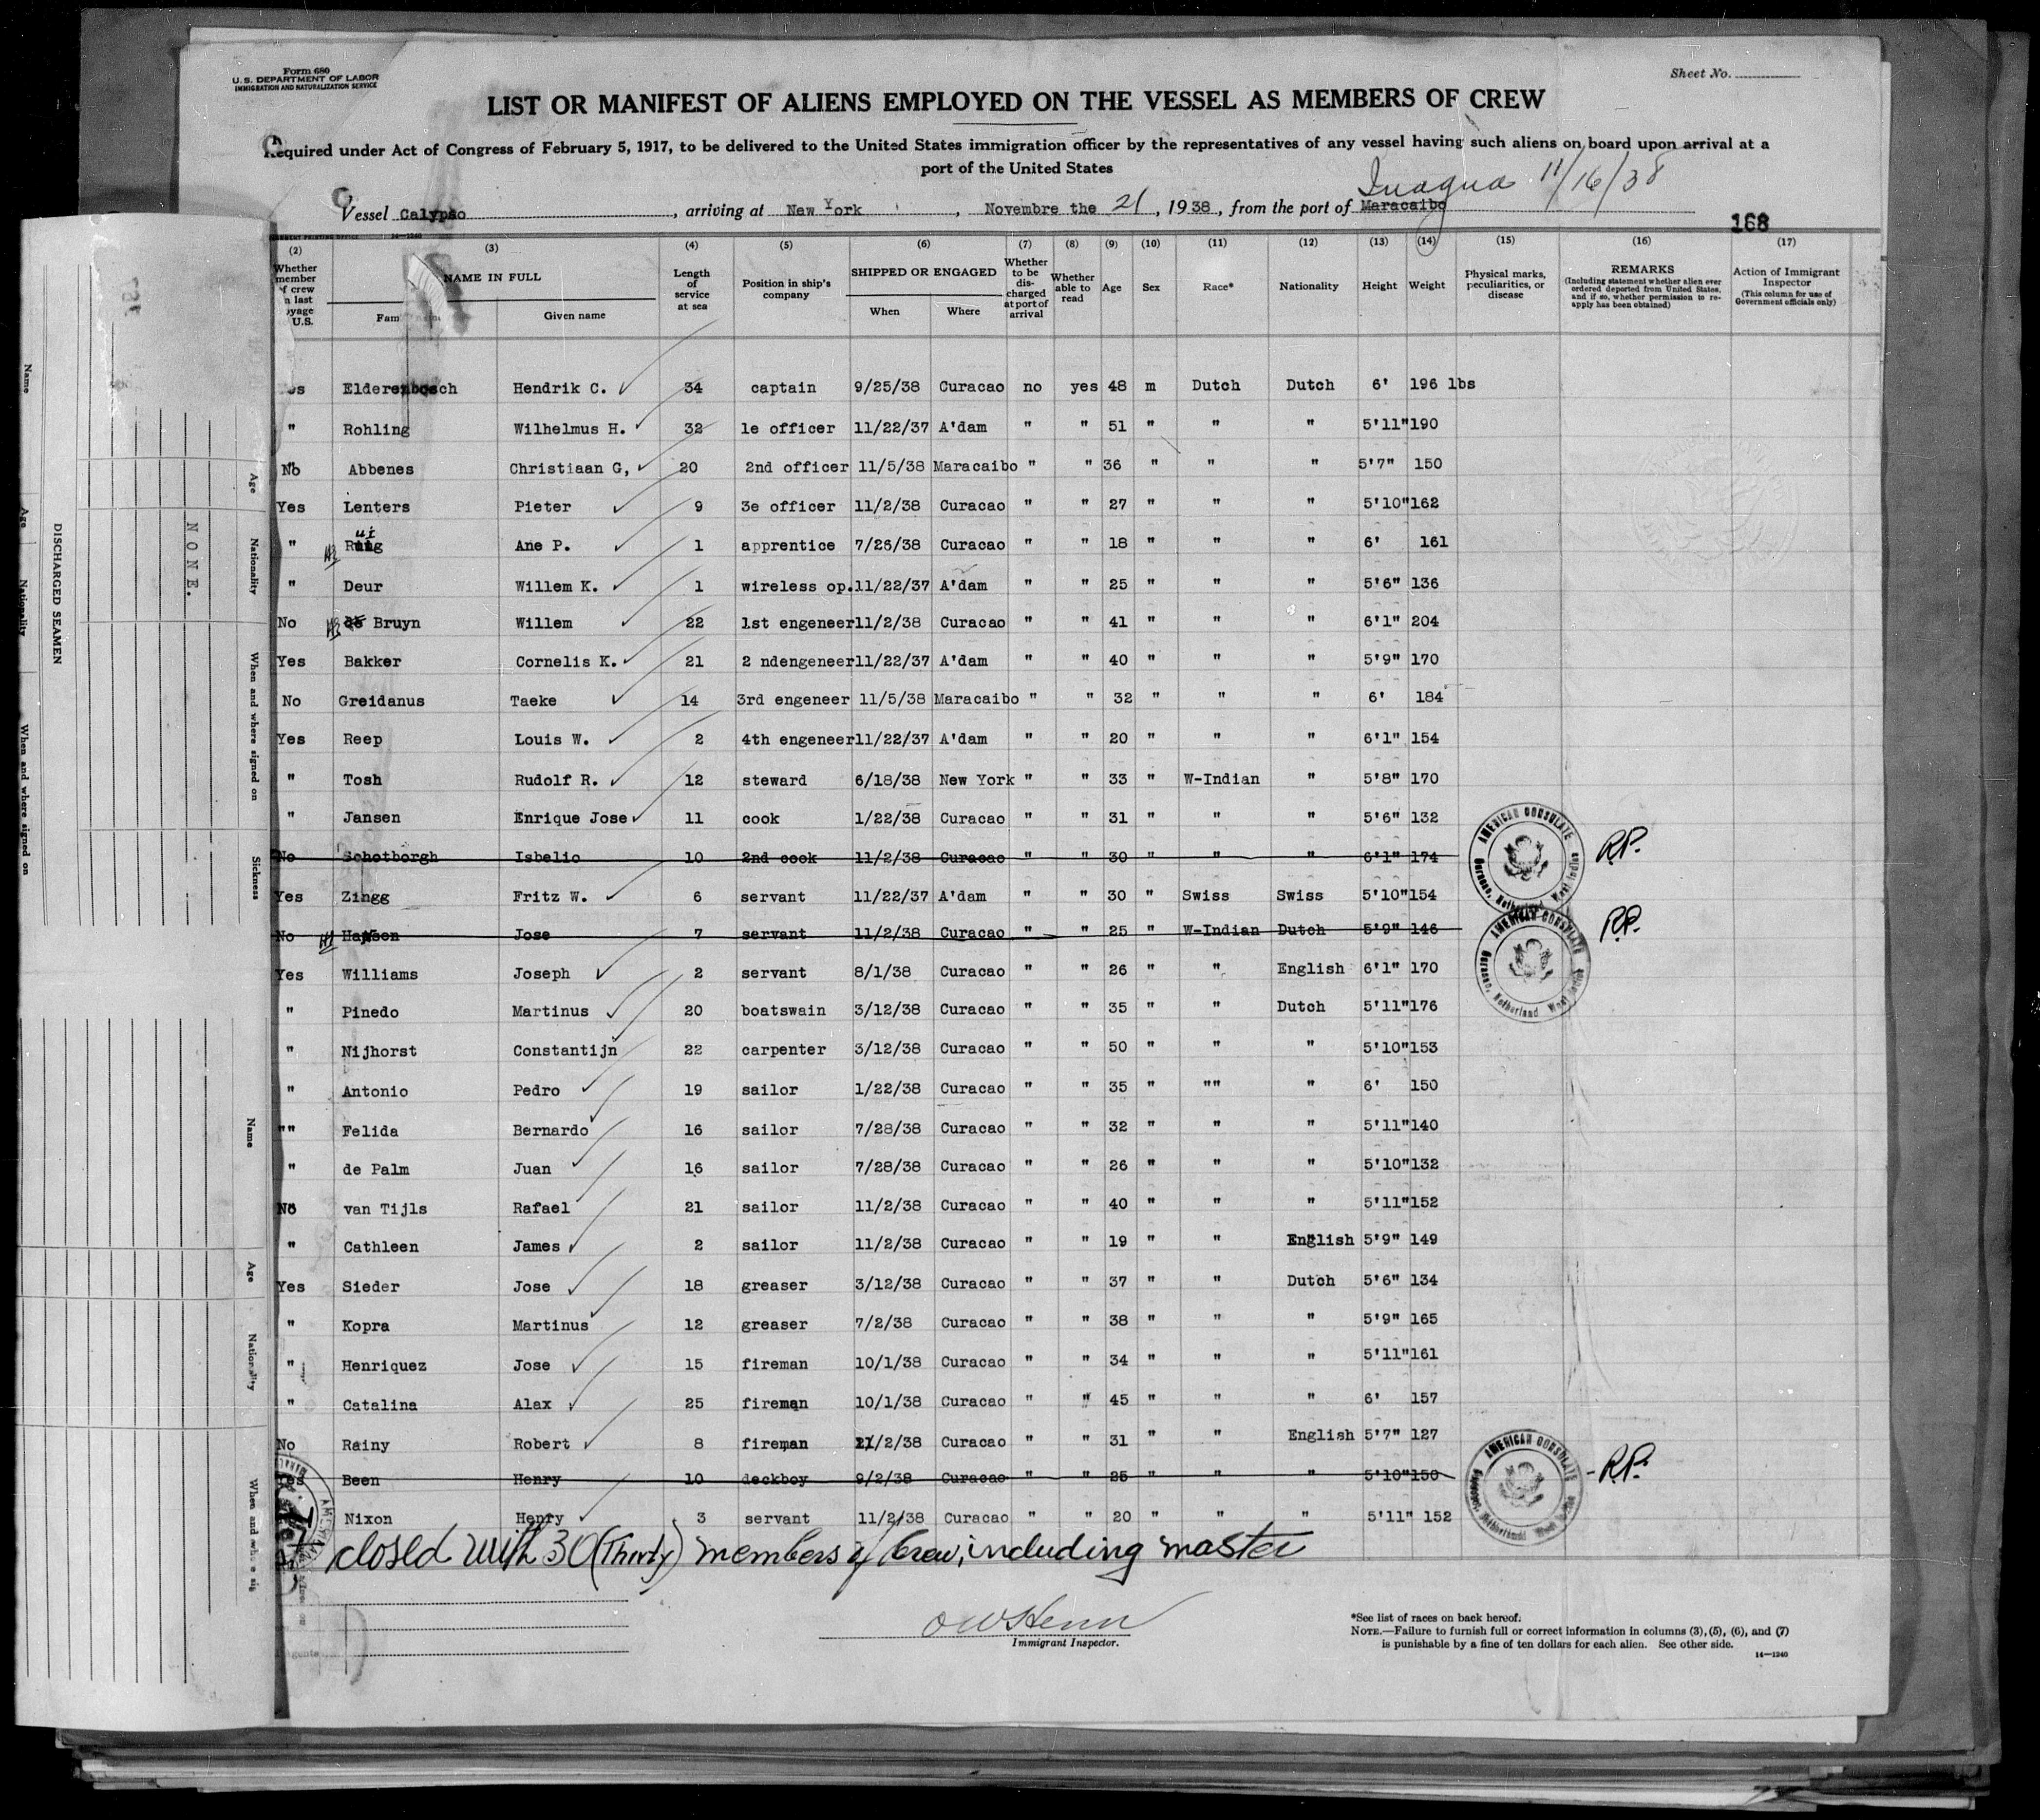 Form 680
U. S. DEPARTMENT OF LABOR
IMMIGRATION AND NATURALIZATION SERVICE
Sheet No.
LIST OR MANIFEST OF ALIENS EMPLOYED ON THE VESSEL AS MEMBERS OF CREW
Required under Act of Congress of February 5, 1917, to be delivered to the United States immigration officer by the representatives of any vessel having such aliens on board upon arrival at a
port of the United States
Inagua 11/16/38
Vessel Calypso, arriving at New York, Novembre the 21, 1938, from the port of Maracaibo
168
(2) (3) (4) (5) (6) (7) (8) (9) (10) (11) (12) (13) (14) (15) (16) (17)
Whether member of crew on last voyage U.S. NAME IN FULL Family name Given name Length of service at sea Position in ship's company SHIPPED OR ENGAGED When Where Whether to be discharged at port of arrival Whether able to read Age Sex Race* Nationality Height Weight Physical marks, peculiarities, or disease REMARKS (Including statement whether alien ever ordered deported from United States, and if so, whether permission to reapply has been obtained) Action of Immigrant Inspector (This column for use of Government officials only)
Elderenbosch Hendrik C. 34 captain 9/25/38 Curacao no yes 48 m Dutch Dutch 6' 196 lbs
" Rohling Wilhelmus H. 32 1e officer 11/22/37 A'dam " " 51 " " " 5'11" 190
No Abbenes Christiaan G, 20 2nd officer 11/5/38 Maracaibo " " 36 " " " 5'7" 150
Yes Lenters Pieter 9 3e officer 11/2/38 Curacao " " 27 " " " 5'10" 162
" Ruig Ane P. 1 apprentice 7/26/38 Curacao " " 18 " " " 6' 161
" Deur Willem K. 1 wireless op. 11/22/37 A'dam " " 25 " " " 5'6" 136
No de Bruyn Willem 22 1st engeneer 11/2/38 Curacao " " 41 " " " 6'1" 204
Yes Bakker Cornelis K. 21 2 ndengeneer 11/22/37 A'dam " " 40 " " " 5'9" 170
No Greidanus Taeke 14 3rd engeneer 11/5/38 Maracaibo " " 32 " " " 6' 184
Yes Reep Louis W. 2 4th engeneer 11/22/37 A'dam " " 20 " " " 6'1" 154
" Tosh Rudolf R. 12 steward 6/18/38 New York " " 33 " W-Indian " 5'8" 170
" Jansen Enrique Jose 11 cook 1/22/38 Curacao " " 31 " " " 5'6" 132
No Schotborgh Isbelio 10 2nd cook 11/2/38 Curacao " " 30 " " " 6'1" 174 R.P.
Yes Zingg Fritz W. 6 servant 11/22/37 A'dam " " 30 " Swiss Swiss 5'10" 154
No Jose 7 servant 11/2/38 Curacao " " 25 " W-Indian Dutch 5'9" 146 R.P.
Yes Williams Joseph 2 servant 8/1/38 Curacao " " 26 " " English 6'1" 170
" Pinedo Martinus 20 boatswain 3/12/38 Curacao " " 35 " " Dutch 5'11" 176
" Nijhorst Constantijn 22 carpenter 3/12/38 Curacao " " 50 " " " 5'10" 153
" Antonio Pedro 19 sailor 1/22/38 Curacao " " 35 " "" " 6' 150
"" Felida Bernardo 16 sailor 7/28/38 Curacao " " 32 " " " 5'11" 140
" de Palm Juan 16 sailor 7/28/38 Curacao " " 26 " " " 5'10" 132
No van Tijls Rafael 21 sailor 11/2/38 Curacao " " 40 " " " 5'11" 152
" Cathleen James 2 sailor 11/2/38 Curacao " " 19 " " English 5'9" 149
Yes Sieder Jose 18 greaser 3/12/38 Curacao " " 37 " " Dutch 5'6" 134
" Kopra Martinus 12 greaser 7/2/38 Curacao " " 38 " " " 5'9" 165
" Henriquez Jose 15 fireman 10/1/38 Curacao " " 34 " " " 5'11" 161
" Catalina Alax 25 fireman 10/1/38 Curacao " " 45 " " " 6' 157
No Rainy Robert 8 fireman 11/2/38 Curacao " " 31 " " English 5'7" 127
Yes Been Henry 10 deckboy 9/2/38 Curacao " " 25 " " " 5'10" 150 R.P.
Nixon Henry 3 servant 11/2/38 Curacao " " 20 " " " 5'11" 152
closed with 30 (Thirty) members of Crew, including master
AMERICAN CONSULATE
Curacao, Netherland West Indies
AMERICAN CONSULATE
Curacao, Netherland West Indies
AMERICAN CONSULATE
Curacao, Netherland West Indies
O W Henn
Immigrant Inspector.
*See list of races on back hereof.
NOTE.—Failure to furnish full or correct information in columns (3), (5), (6), and (7)
is punishable by a fine of ten dollars for each alien. See other side.
14—1240
DISCHARGED SEAMEN
NONE.
Name
Age
Nationality
When and where signed on
Sickness
Name
Age
Nationality
Name
Age
Nationality
When and where signed on